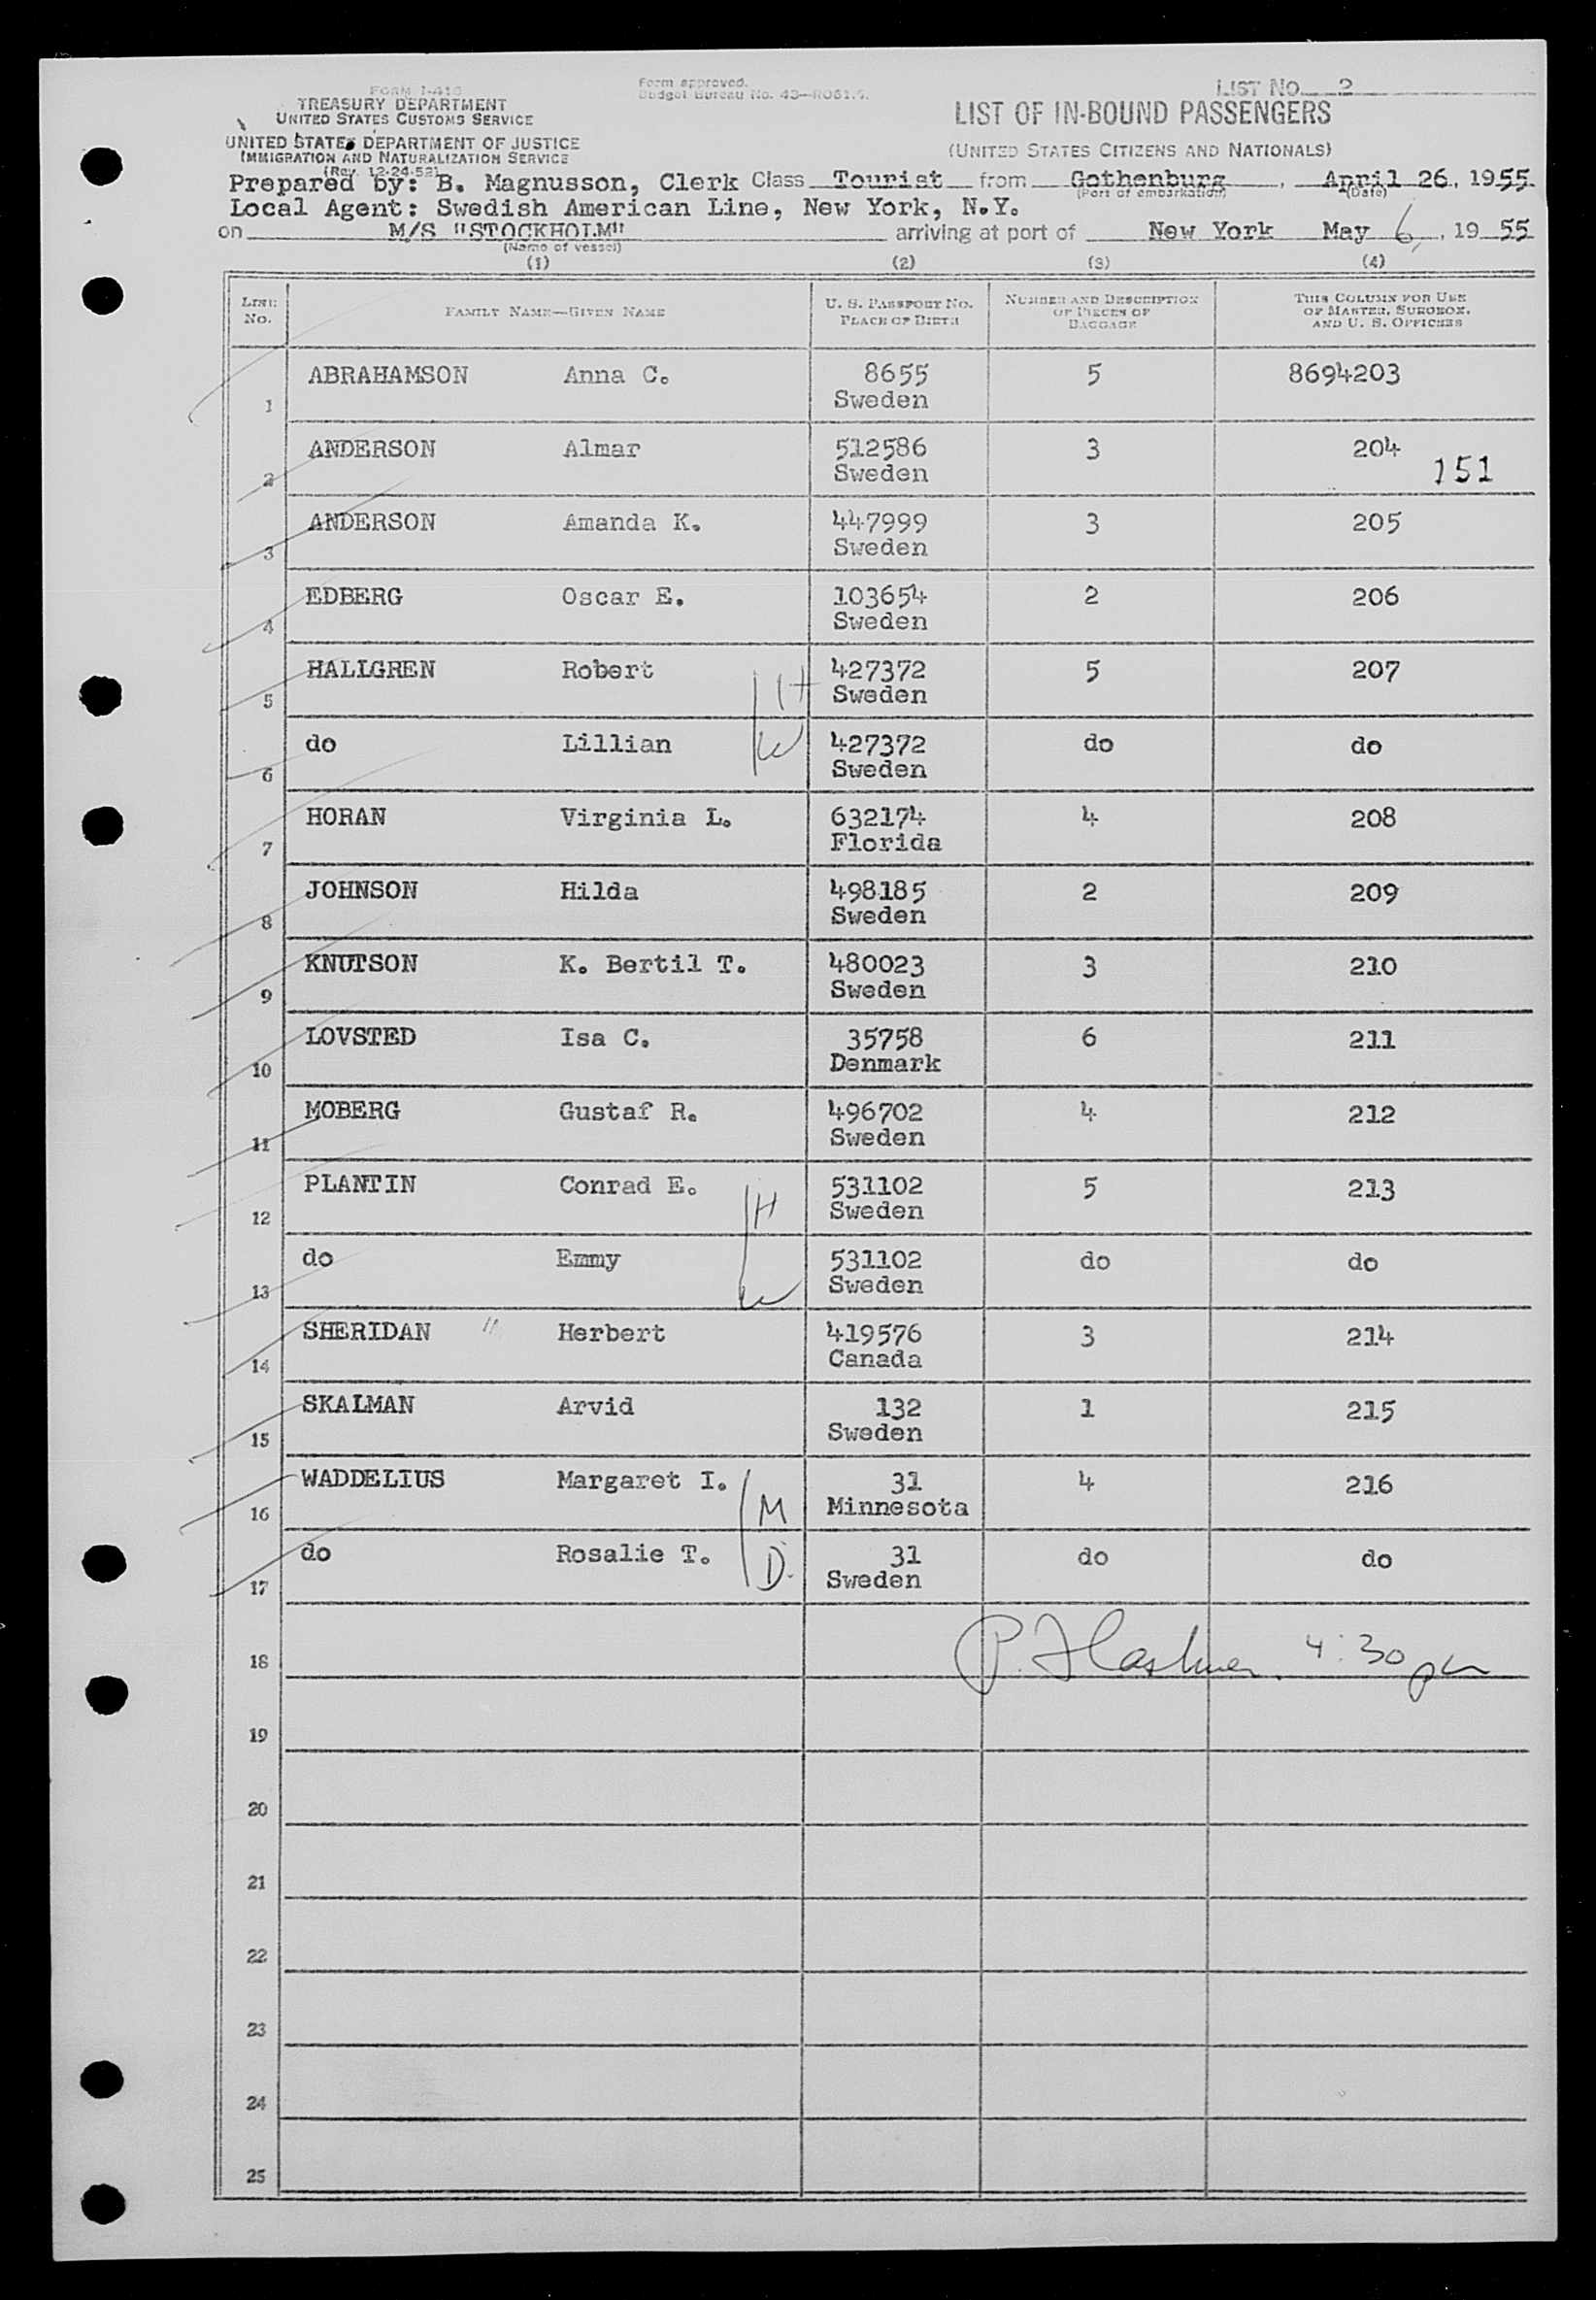 FORM I-418
TREASURY DEPARTMENT
UNITED STATES CUSTOMS SERVICE
UNITED STATES DEPARTMENT OF JUSTICE
IMMIGRATION AND NATURALIZATION SERVICE
(Rev. 12-24-52)
Form approved.
Budget Bureau No. 43—RO81.
LIST No. 2
LIST OF IN-BOUND PASSENGERS
(UNITED STATES CITIZENS AND NATIONALS)
Prepared by: B. Magnusson, Clerk Class Tourist from Gothenburg, April 26, 1955
(Port of embarkation) (Date)
Local Agent: Swedish American Line, New York, N.Y.
on M/S "STOCKHOLM" arriving at port of New York May 6, 1955
(Name of vessel)
(1) (2) (3) (4)
LINE No. FAMILY NAME—GIVEN NAME U. S. PASSPORT No. PLACE OF BIRTH NUMBER AND DESCRIPTION OF PIECES OF BAGGAGE THIS COLUMN FOR USE OF MASTER, SURGEON, AND U. S. OFFICERS
1 ABRAHAMSON Anna C. 8655 5 8694203
Sweden
2 ANDERSON Almar 512586 3 204
Sweden 151
3 ANDERSON Amanda K. 447999 3 205
Sweden
4 EDBERG Oscar E. 103654 2 206
Sweden
5 HALLGREN Robert H 427372 5 207
Sweden
6 do Lillian W 427372 do do
Sweden
7 HORAN Virginia L. 632174 4 208
Florida
8 JOHNSON Hilda 498185 2 209
Sweden
9 KNUTSON K. Bertil T. 480023 3 210
Sweden
10 LOVSTED Isa C. 35758 6 211
Denmark
11 MOBERG Gustaf R. 496702 4 212
Sweden
12 PLANTIN Conrad E. H 531102 5 213
Sweden
13 do Emmy W 531102 do do
Sweden
14 SHERIDAN " Herbert 419576 3 214
Canada
15 SKALMAN Arvid 132 1 215
Sweden
16 WADDELIUS Margaret I. M 31 4 216
Minnesota
17 do Rosalie T. D. 31 do do
Sweden
18 P. 4:30 pm
19
20
21
22
23
24
25